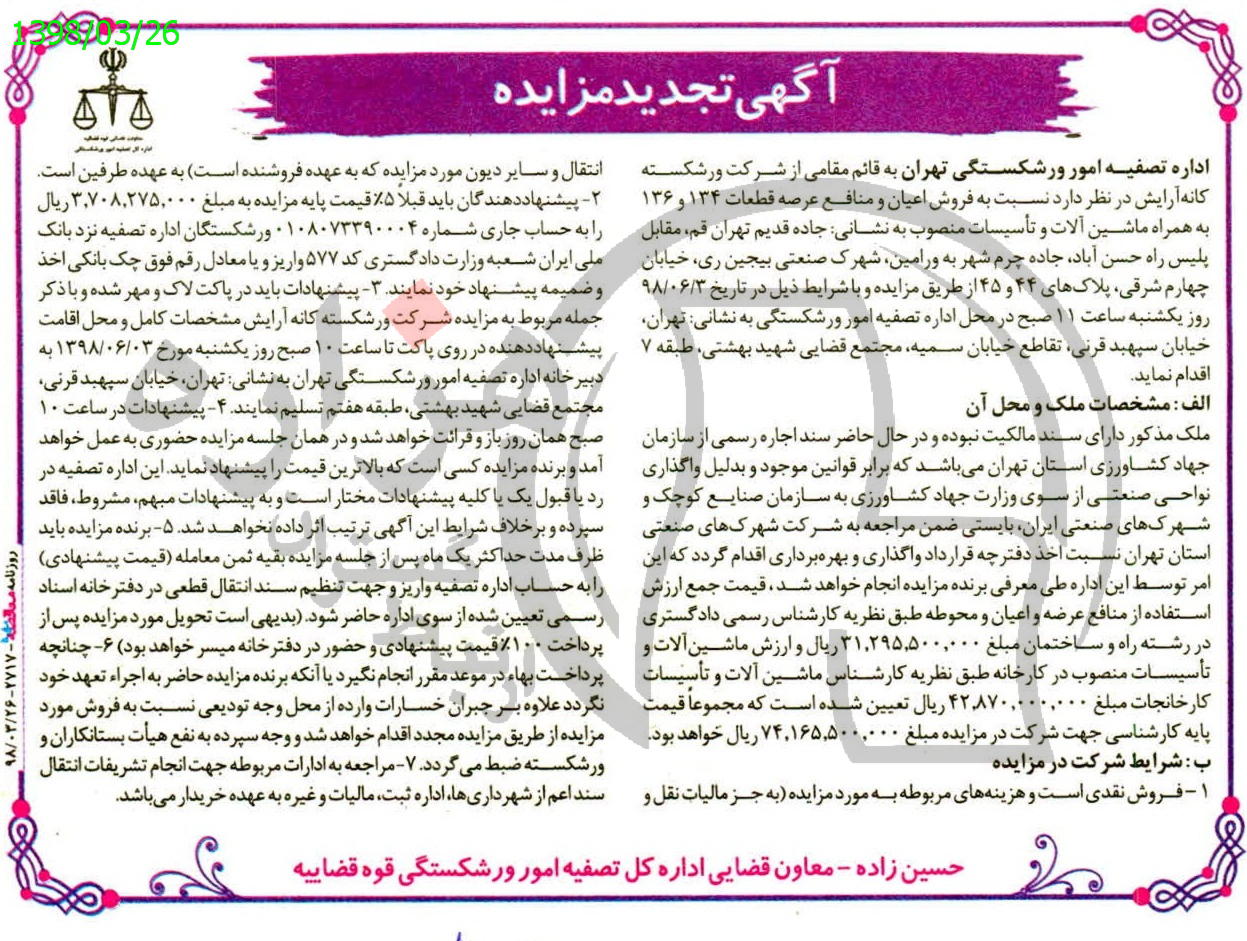 1398/03/26
معاونت قضائی قوه قضائیه
اداره کل تصفیه امور ورشکستگی
آگهی تجدید مزایده
اداره تصفیه امور ورشکستگی تهران به قائم مقامی از شرکت ورشکسته
کانه آرایش در نظر دارد نسبت به فروش اعیان و منافع عرصه قطعات ۱۳۴ و ۱۳۶
به همراه ماشین آلات و تأسیسات منصوب به نشانی: جاده قدیم تهران قم، مقابل
پلیس راه حسن آباد، جاده چرم شهر به ورامین، شهرک صنعتی بیجین ری، خیابان
چهارم شرقی، پلاک‌های ۴۴ و ۴۵ از طریق مزایده و با شرایط ذیل در تاریخ ۹۸/۰۶/۳
روز یکشنبه ساعت ۱۱ صبح در محل اداره تصفیه امور ورشکستگی به نشانی: تهران،
خیابان سپهبد قرنی، تقاطع خیابان سمیه، مجتمع قضایی شهید بهشتی، طبقه ۷
اقدام نماید.
الف: مشخصات ملک و محل آن
ملک مذکور دارای سند مالکیت نبوده و در حال حاضر سند اجاره رسمی از سازمان
جهاد کشاورزی استان تهران می‌باشد که برابر قوانین موجود و بدلیل واگذاری
نواحی صنعتی از سوی وزارت جهاد کشاورزی به سازمان صنایع کوچک و
شهرک‌های صنعتی ایران، بایستی ضمن مراجعه به شرکت شهرک‌های صنعتی
استان تهران نسبت اخذ دفترچه قرارداد واگذاری و بهره‌برداری اقدام گردد که این
امر توسط این اداره طی معرفی برنده مزایده انجام خواهد شد، قیمت جمع ارزش
استفاده از منافع عرضه و اعیان و محوطه طبق نظریه کارشناس رسمی دادگستری
در رشته راه و ساختمان مبلغ ۳۱,۲۹۵,۵۰۰,۰۰۰ ریال و ارزش ماشین‌آلات و
تأسیسات منصوب در کارخانه طبق نظریه کارشناس ماشین آلات و تأسیسات
کارخانجات مبلغ ۴۲,۸۷۰,۰۰۰,۰۰۰ ریال تعیین شده است که مجموعاً قیمت
پایه کارشناسی جهت شرکت در مزایده مبلغ ۷۴,۱۶۵,۵۰۰,۰۰۰ ریال خواهد بود.
ب: شرایط شرکت در مزایده
۱- فروش نقدی است و هزینه‌های مربوطه به مورد مزایده (به جز مالیات نقل و
انتقال و سایر دیون مورد مزایده که به عهده فروشنده است) به عهده طرفین است.
۲- پیشنهاددهندگان باید قبلاً ۵٪ قیمت پایه مزایده به مبلغ ۳,۷۰۸,۲۷۵,۰۰۰ ریال
را به حساب جاری شماره ۰۱۰۸۰۷۳۳۹۰۰۰۴ ورشکستگان اداره تصفیه نزد بانک
ملی ایران شعبه وزارت دادگستری کد ۵۷۷ واریز و یا معادل رقم فوق چک بانکی اخذ
و ضمیمه پیشنهاد خود نمایند. ۳- پیشنهادات باید در پاکت لاک و مهر شده و با ذکر
جمله مربوط به مزایده شرکت ورشکسته کانه آرایش مشخصات کامل و محل اقامت
پیشنهاددهنده در روی پاکت تا ساعت ۱۰ صبح روز یکشنبه مورخ ۱۳۹۸/۰۶/۰۳ به
دبیرخانه اداره تصفیه امور ورشکستگی تهران به نشانی: تهران، خیابان سپهبد قرنی،
مجتمع قضایی شهید بهشتی، طبقه هفتم تسلیم نمایند. ۴- پیشنهادات در ساعت ۱۰
صبح همان روز باز و قرائت خواهد شد و در همان جلسه مزایده حضوری به عمل خواهد
آمد و برنده مزایده کسی است که بالاترین قیمت را پیشنهاد نماید. این اداره تصفیه در
رد یا قبول یک یا کلیه پیشنهادات مختار است و به پیشنهادات مبهم، مشروط، فاقد
سپرده و برخلاف شرایط این آگهی ترتیب اثر داده نخواهد شد. ۵- برنده مزایده باید
ظرف مدت حداکثر یک ماه پس از جلسه مزایده بقیه ثمن معامله (قیمت پیشنهادی)
را به حساب اداره تصفیه واریز و جهت تنظیم سند انتقال قطعی در دفترخانه اسناد
رسمی تعیین شده از سوی اداره حاضر شود. (بدیهی است تحویل مورد مزایده پس از
پرداخت ۱۰۰٪ قیمت پیشنهادی و حضور در دفترخانه میسر خواهد بود) ۶- چنانچه
پرداخت بهاء در موعد مقرر انجام نگیرد یا آنکه برنده مزایده حاضر به اجراء تعهد خود
نگردد علاوه بر جبران خسارات وارده از محل وجه تودیعی نسبت به فروش مورد
مزایده از طریق مزایده مجدد اقدام خواهد شد و وجه سپرده به نفع هیأت بستانکاران و
ورشکسته ضبط می گردد. ۷- مراجعه به ادارات مربوطه جهت انجام تشریفات انتقال
سند اعم از شهرداری‌ها، اداره ثبت، مالیات و غیره به عهده خریدار می‌باشد.
حسین زاده - معاون قضایی اداره کل تصفیه امور ورشکستگی قوه قضاییه
هزاره